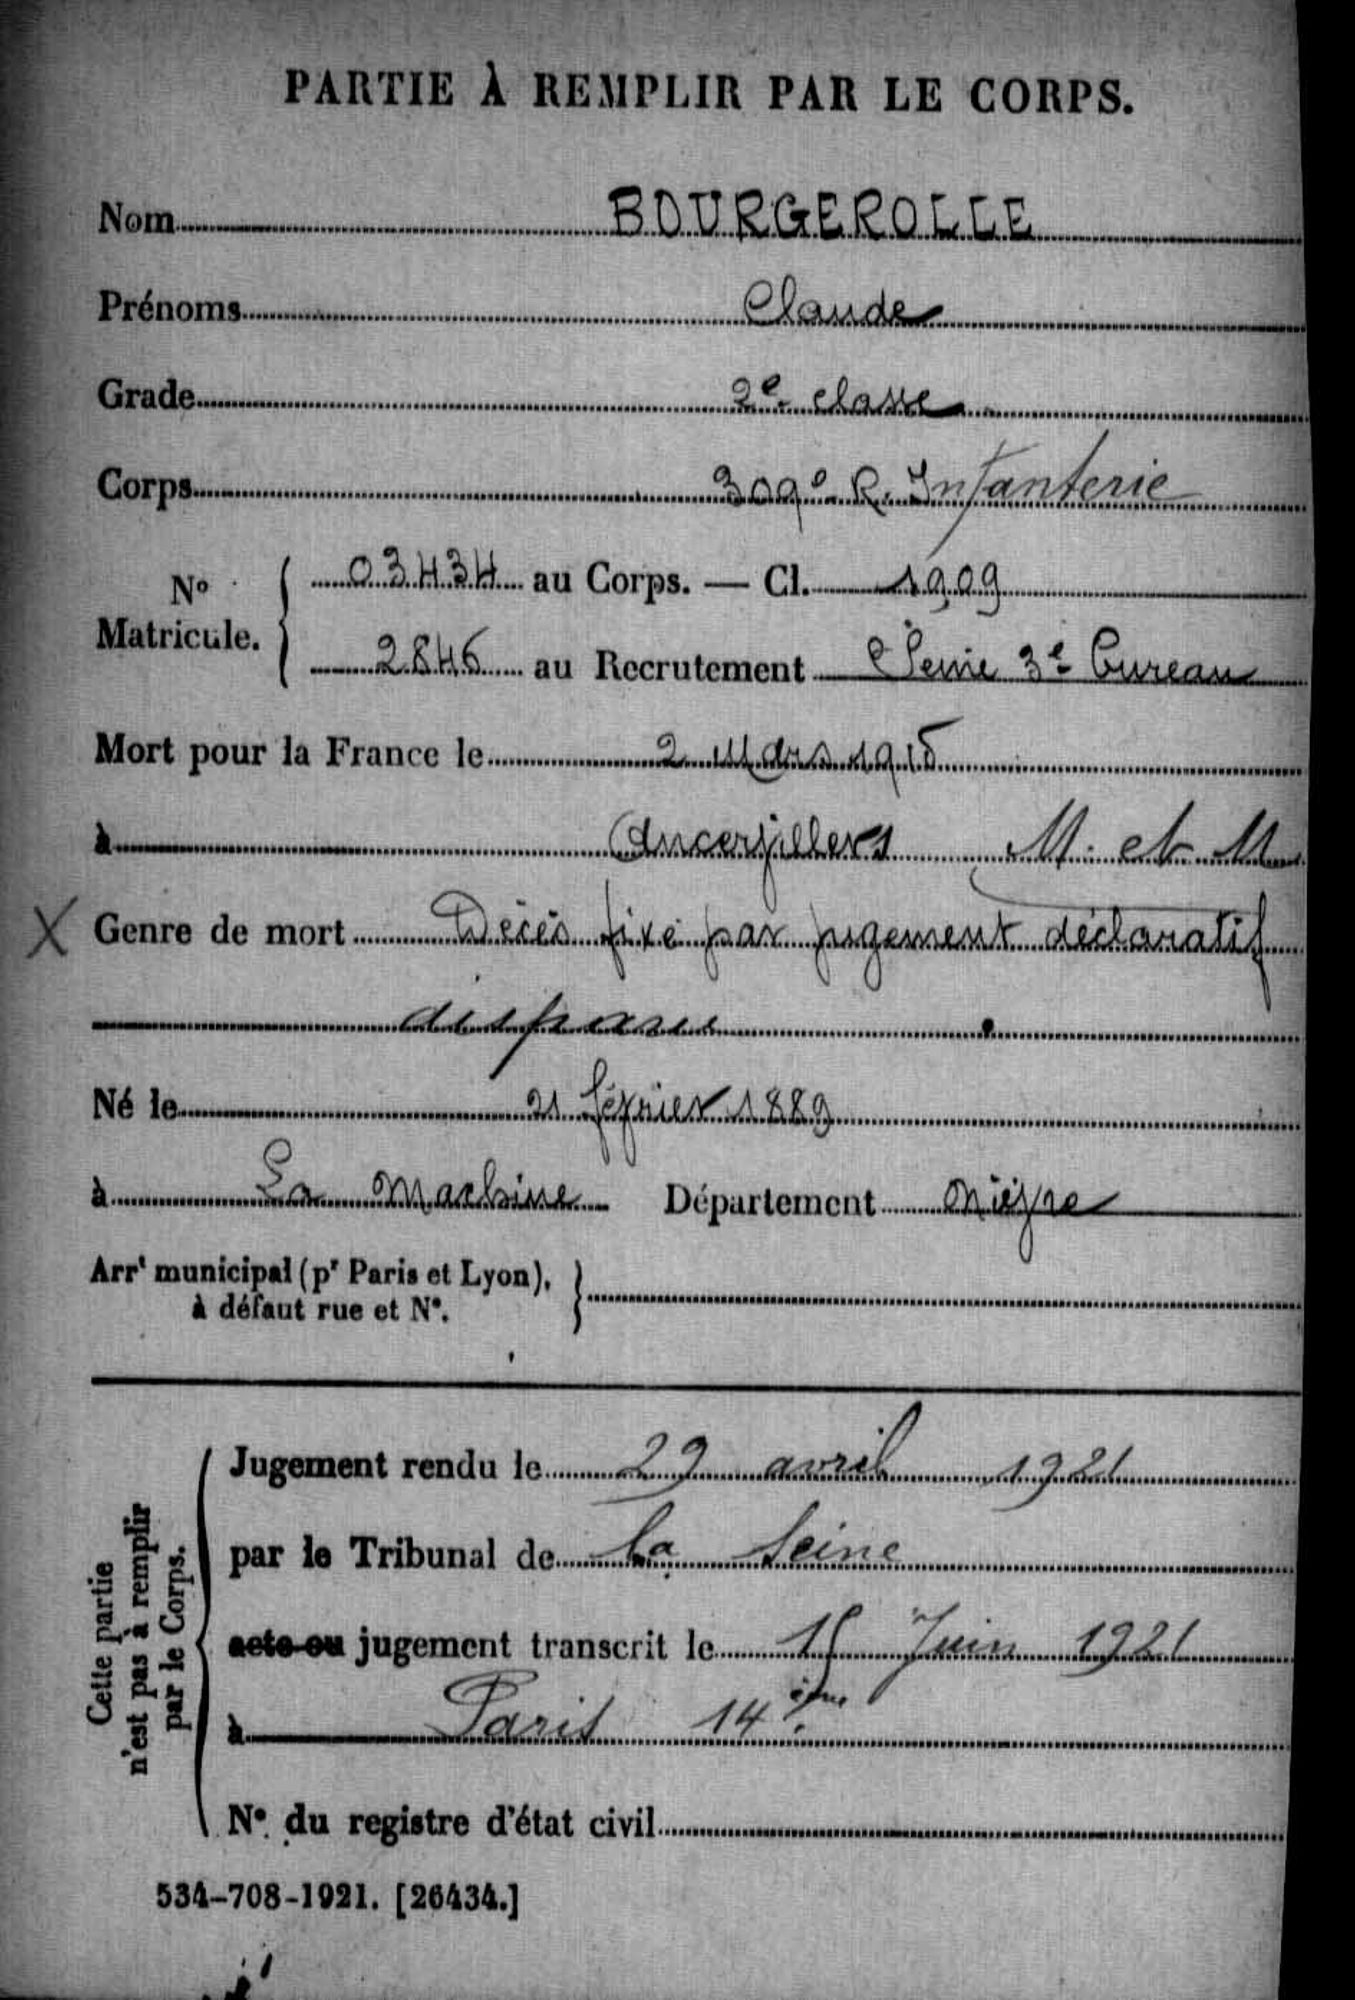 PARTIE À REMPLIR PAR LE CORPS.
Nom BOURGEROLLE
Prénoms Claude
Grade 2e classe
Corps 309e R. Infanterie
No Matricule. { 03434 au Corps. — Cl. 1909
2846 au Recrutement Seine 3e bureau
Mort pour la France le 2 Mars 1915
à Ancervillers M. et M.
X Genre de mort Décès fixé par jugement déclaratif
disparu
Né le 21 février 1889
à La Machine Département Nièvre
Arrt municipal (pr Paris et Lyon), à défaut rue et N°. }
Cette partie n'est pas à remplir par le Corps.
Jugement rendu le 29 avril 1921
par le Tribunal de la Seine
acte ou jugement transcrit le 15 Juin 1921
à Paris 14ème
N° du registre d'état civil
534-708-1921. [26434.]